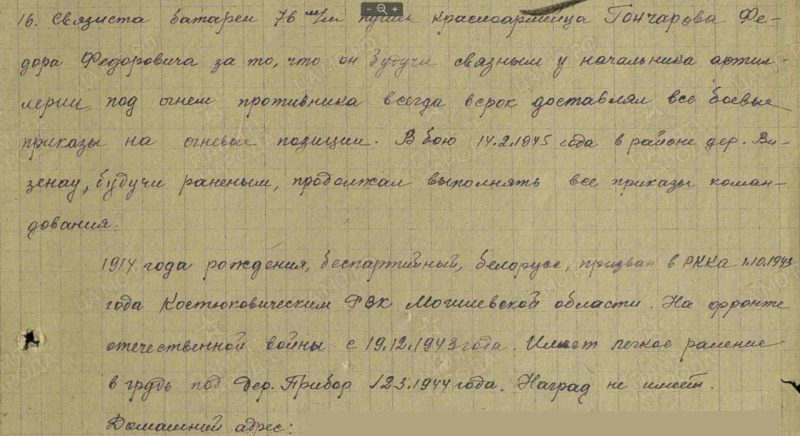 16. Связиста батареи 76 м/м пушек красноармейца Гончарова Фе-
дора Федоровича за то, что он будучи связным у начальника артил-
лерии под огнем противника всегда всрок доставлял все боевые
приказы на огневые позиции. В бою 14.2.1945 года в районе дер. Ви-
зенау, будучи раненым, продолжал выполнять все приказы коман-
дования.
1914 года рождения, беспартийный, белорусс, призван в РККА 1.10.1943
года Костюковическим РВК Могилевской области. На фронте
отечественной войны с 19.12.1943 года. Имеет легкое ранение
в грудь под дер. Прибор 1944 года. Наград не имеет.
Домашний адрес: